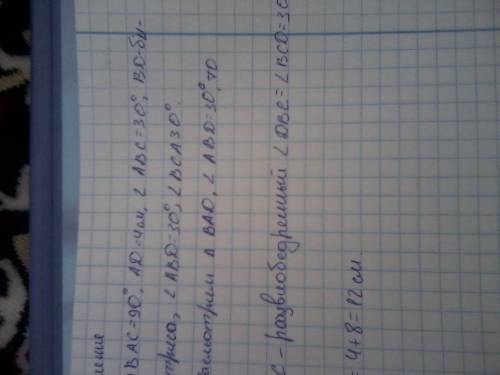 ение
BAC=90°, AD=4см, ∠ABC=30°, BD-би-
триса, ∠ABD=30°, ∠BCA30°.
ассмотрим Δ BAD, ∠ABD=30°, то
C - равнобедренный ∠DBC=∠BCD=30
= 4+8=12см